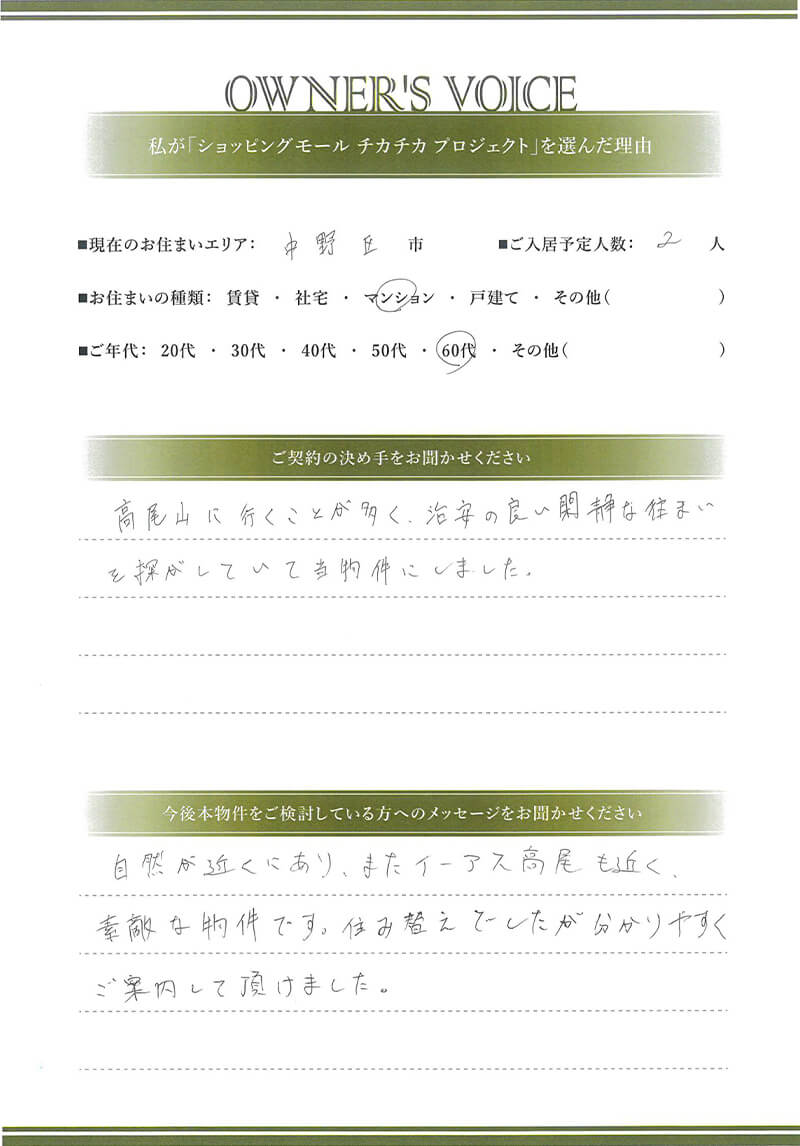 OWNER'S VOICE
私が「ショッピングモール チカチカ プロジェクト」を選んだ理由
■現在のお住まいエリア： 中野区 市 ■ご入居予定人数： 2 人
■お住まいの種類： 賃貸 ・ 社宅 ・ マンション ・ 戸建て ・ その他（ ）
■ご年代： 20代 ・ 30代 ・ 40代 ・ 50代 ・ 60代 ・ その他（ ）
ご契約の決め手をお聞かせください
高尾山に行くことが多く、治安の良い閑静な住まい
を探がしていて当物件にしました。
今後本物件をご検討している方へのメッセージをお聞かせください
自然が近くにあり、またイーアス高尾も近く、
素敵な物件です。住み替えでしたが分かりやすく
ご案内して頂けました。